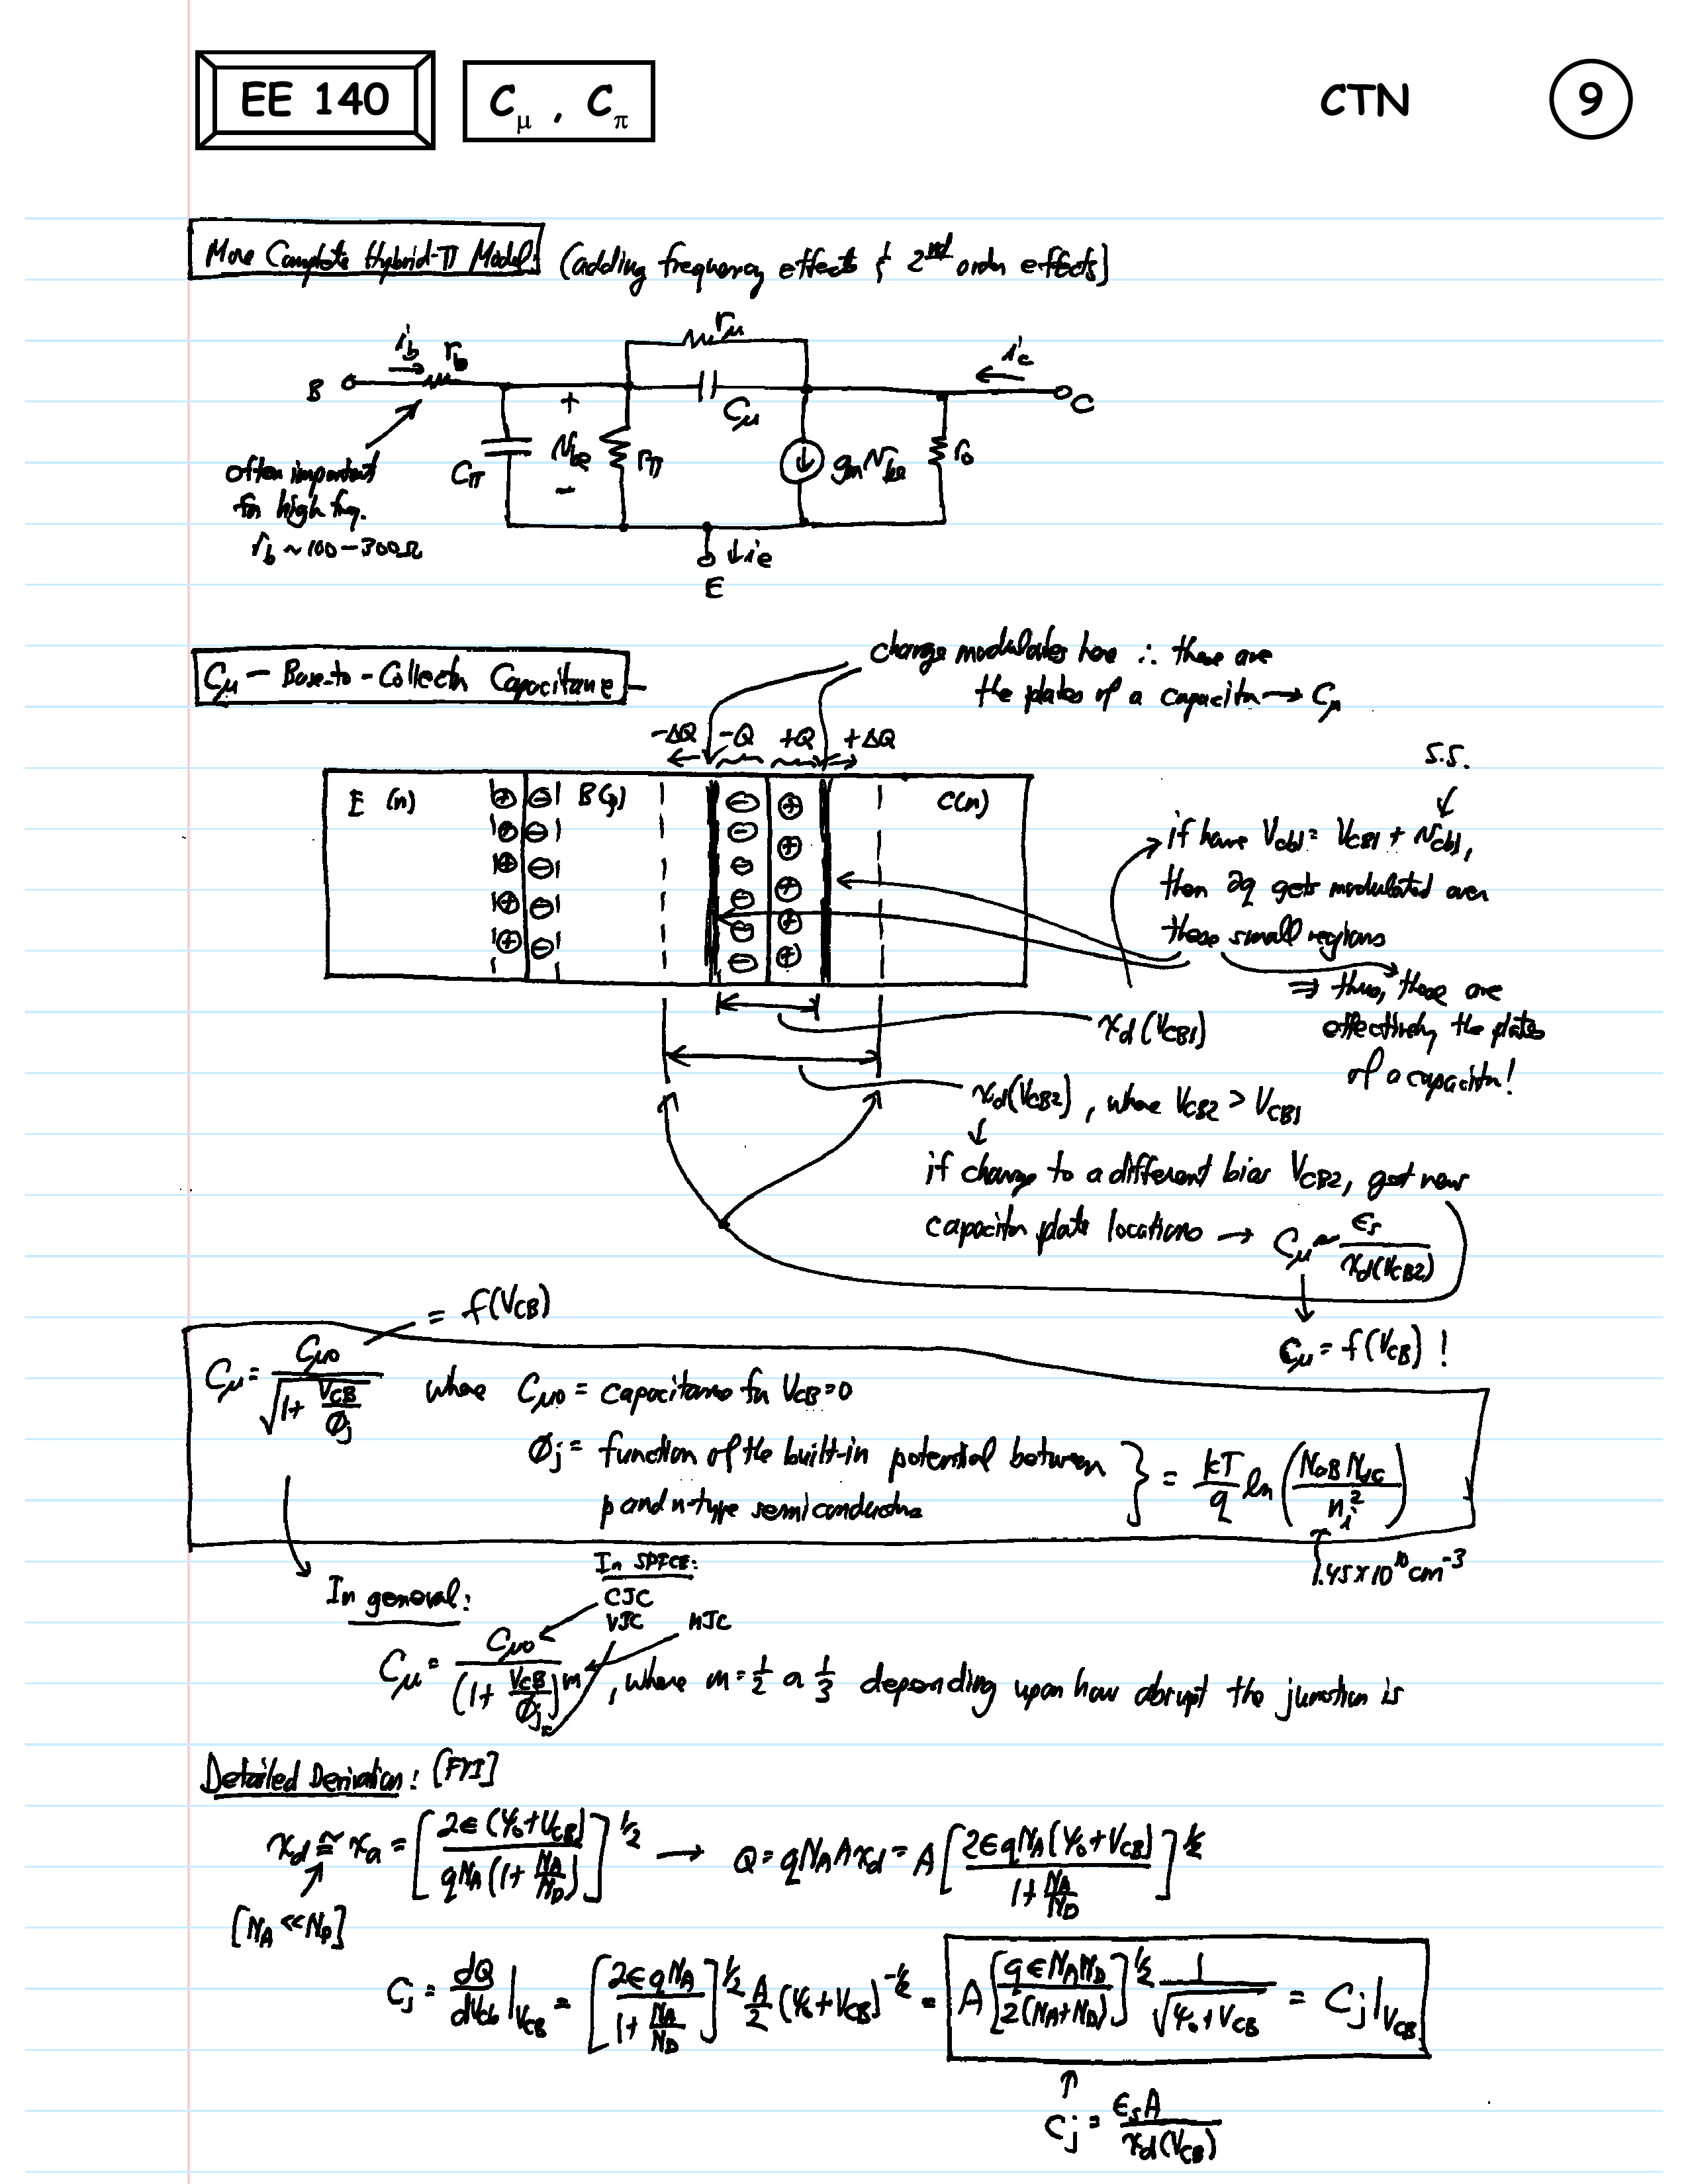 EE 140
Cμ , Cπ
CTN
9
More Complete Hybrid-π Model: (adding frequency effects & 2nd order effects)
ib rb rμ ic
B + Cμ C
Cπ vbe rπ gmvbe ro
−
often important
for high freq.
rb ~ 100–300Ω
↓ie
E
Cμ – Base-to-Collector Capacitance –
charge modulates here ∴ these are
the plates of a capacitor → Cμ
−ΔQ −Q +Q +ΔQ
E (n) B(p) C(n)
S.S.
if have Vcb1 = VCB1 + vcb1,
then ∂q gets modulated over
these small regions
⇒ thus, these are
effectively the plates
of a capacitor!
xd(VCB1)
xd(VCB2), where VCB2 > VCB1
if change to a different bias VCB2, get new
capacitor plate locations → Cμ ~ εs / xd(VCB2)
Cμ = f(VCB) !
= f(VCB)
Cμ = Cμo / √(1 + VCB/Øj) where Cμo = capacitance for VCB=0
Øj = function of the built-in potential between
p and n-type semiconductor } = kT/q ln (NaB NdC / ni²)
1.45×10^10 cm^-3
In general:
In SPICE:
CJC
VJC MJC
Cμ = Cμo / (1 + VCB/Øj)^m , where m = 1/2 or 1/3 depending upon how abrupt the junction is
Detailed Derivation: [FYI]
xd ≅ xa = [2ε(ψo+VCB) / qNA(1 + NA/ND)]^1/2 → Q = qNAAxd = A[2εqNA(ψo+VCB) / (1 + NA/ND)]^1/2
[NA << ND]
Cj = dQ/dVcb |VCB = [2εqNA / (1 + NA/ND)]^1/2 A/2 (ψo+VCB)^-1/2 = A[qεNAND / 2(NA+ND)]^1/2 1/√(ψo+VCB) = Cj|VCB
Cj = εsA / xd(VCB)